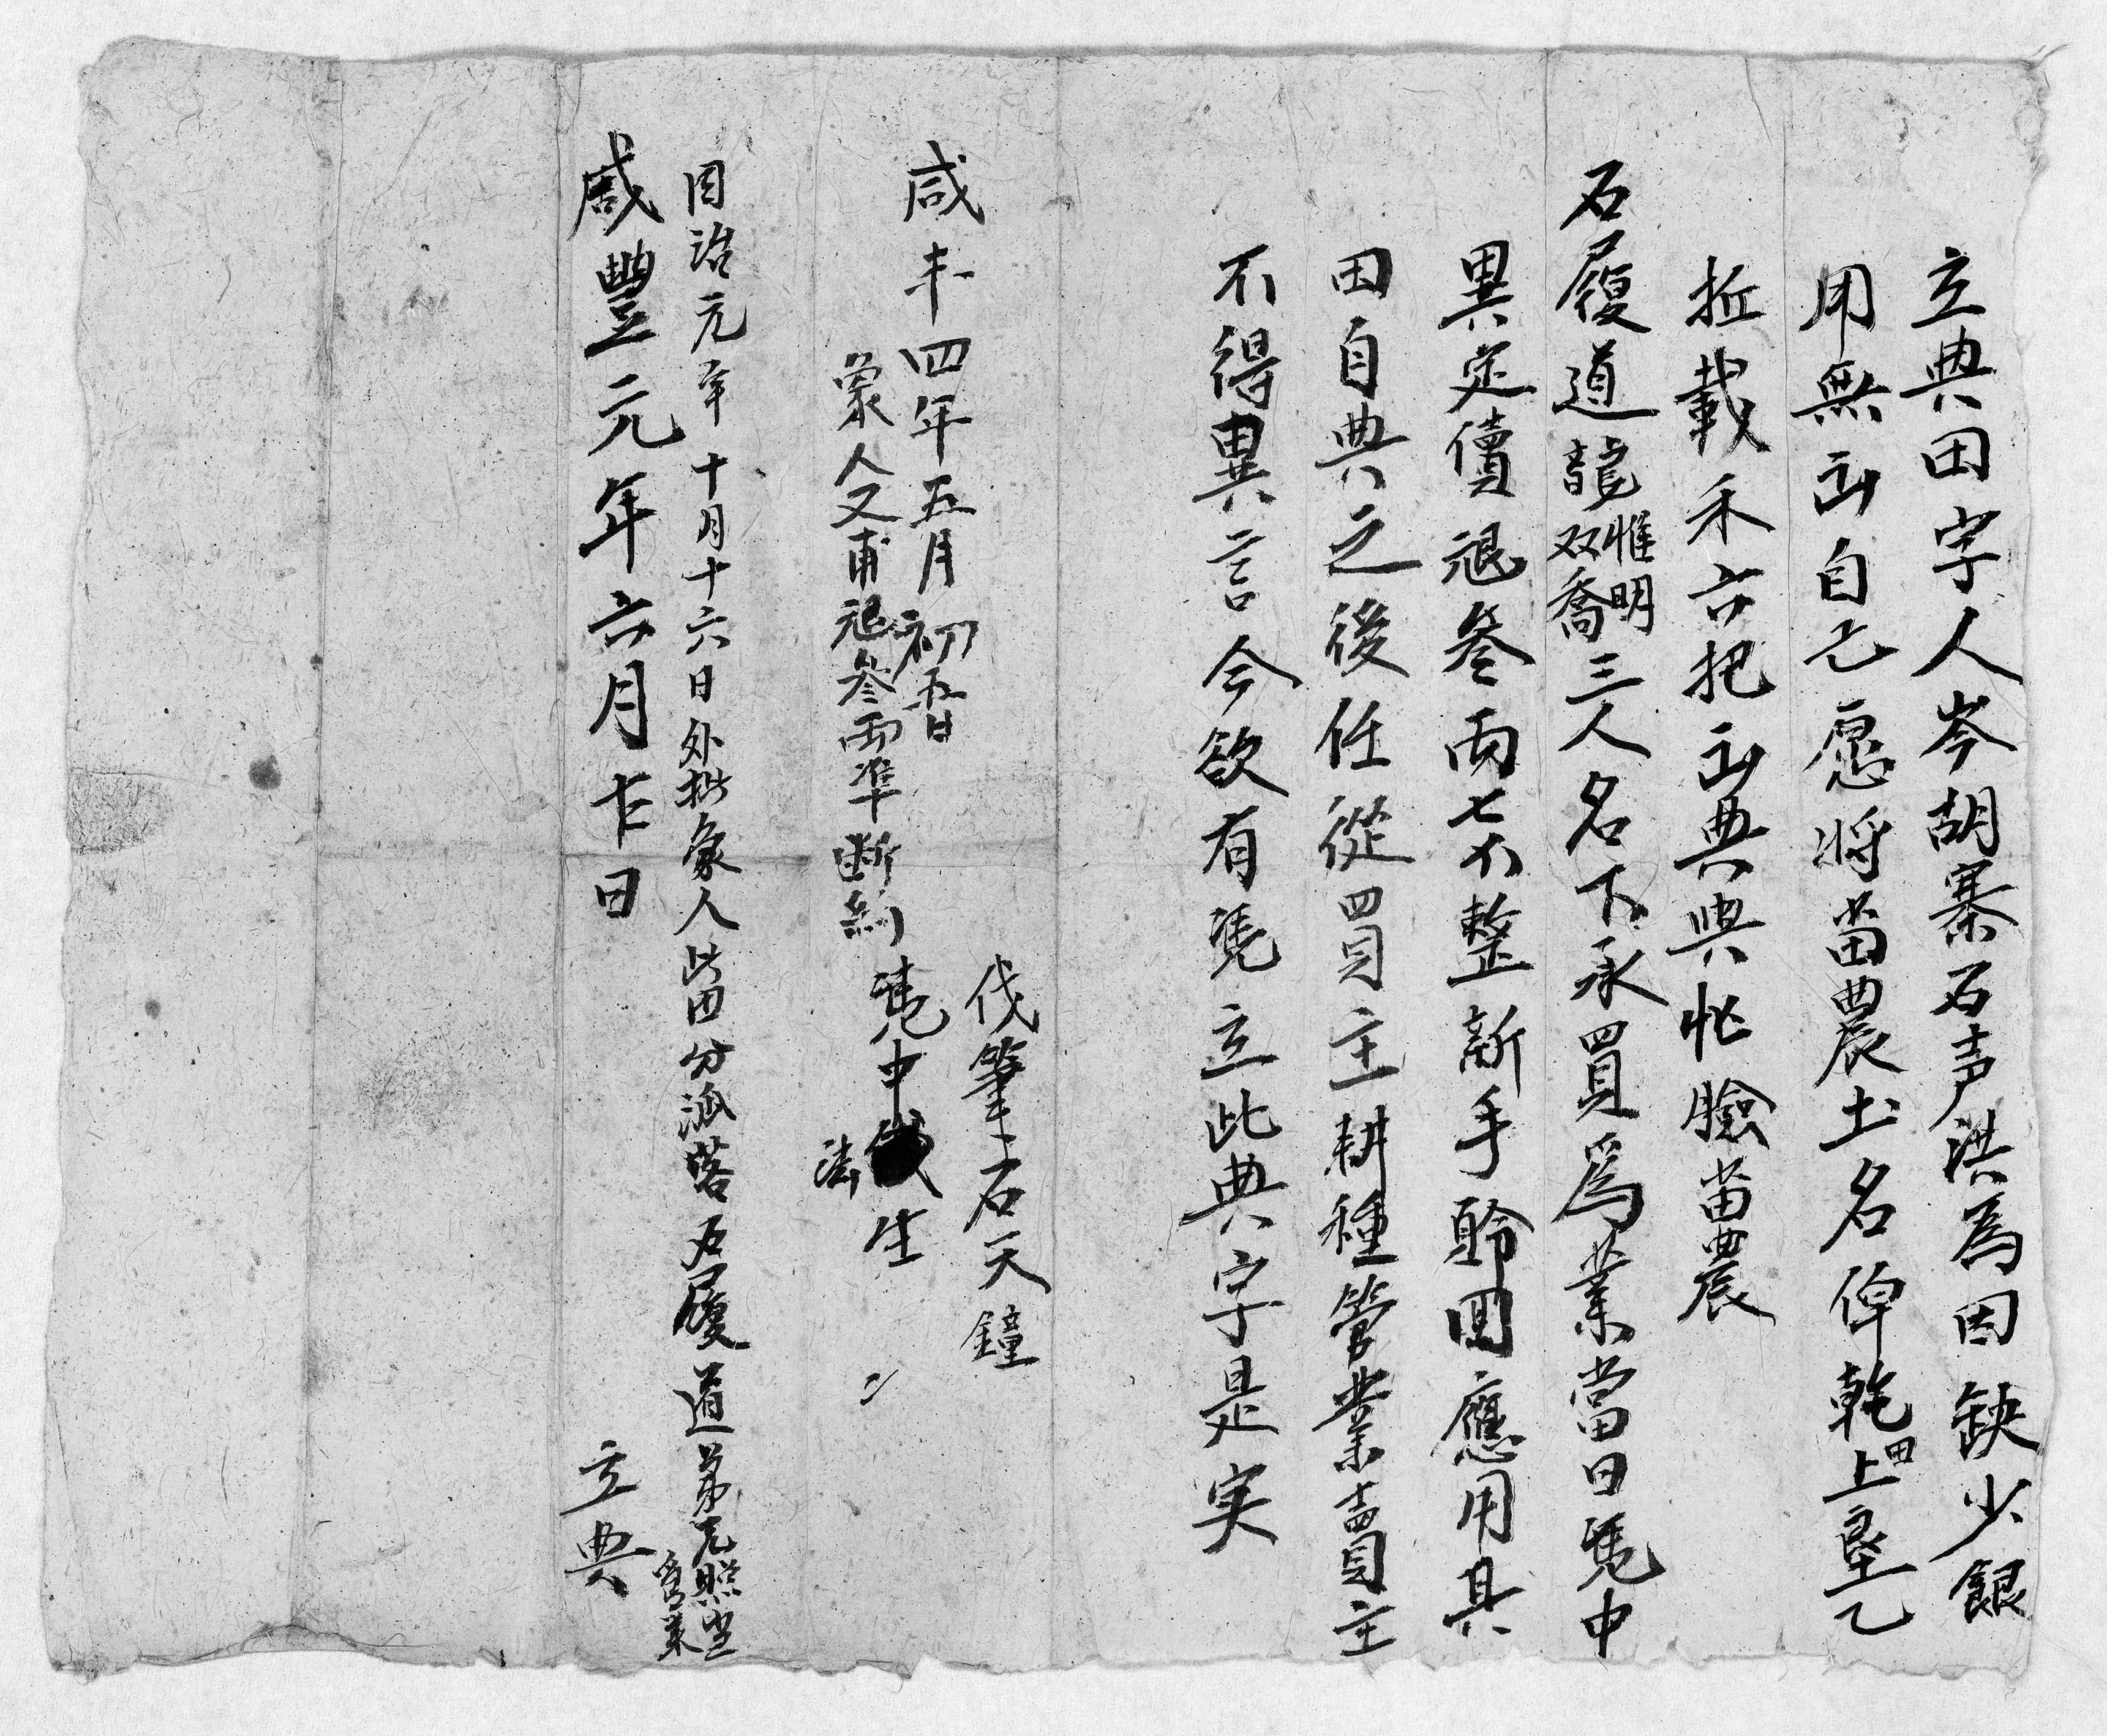 立典田字人岑胡寨石声洪為因缺少銀
用無出自己愿将苗農土名俾乾田上垦乙
坵載禾六把出典典忙臉苗農
石履道龍惟明双喬三人名下承買為業當日凴中
異定價退叁両七不整新手聆回應用其
田自典之後任從買主耕種管業賣主
不得異言今欲有凴立此典字是实
伐筆石天鐘
凴中 生
咸丰四年五月初五日
象人又甫退叁両準断約
同治元年十月十六日外批象人此田分派落石履道弟兄照坐管業
咸豐元年六月十日 立典